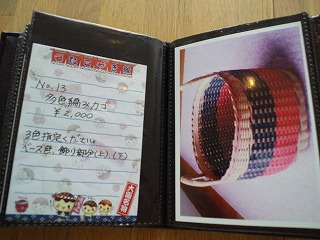 No.13
多色編みカゴ
¥2,000
3色指定ください。
ベース色、飾り部分(上)、(下)